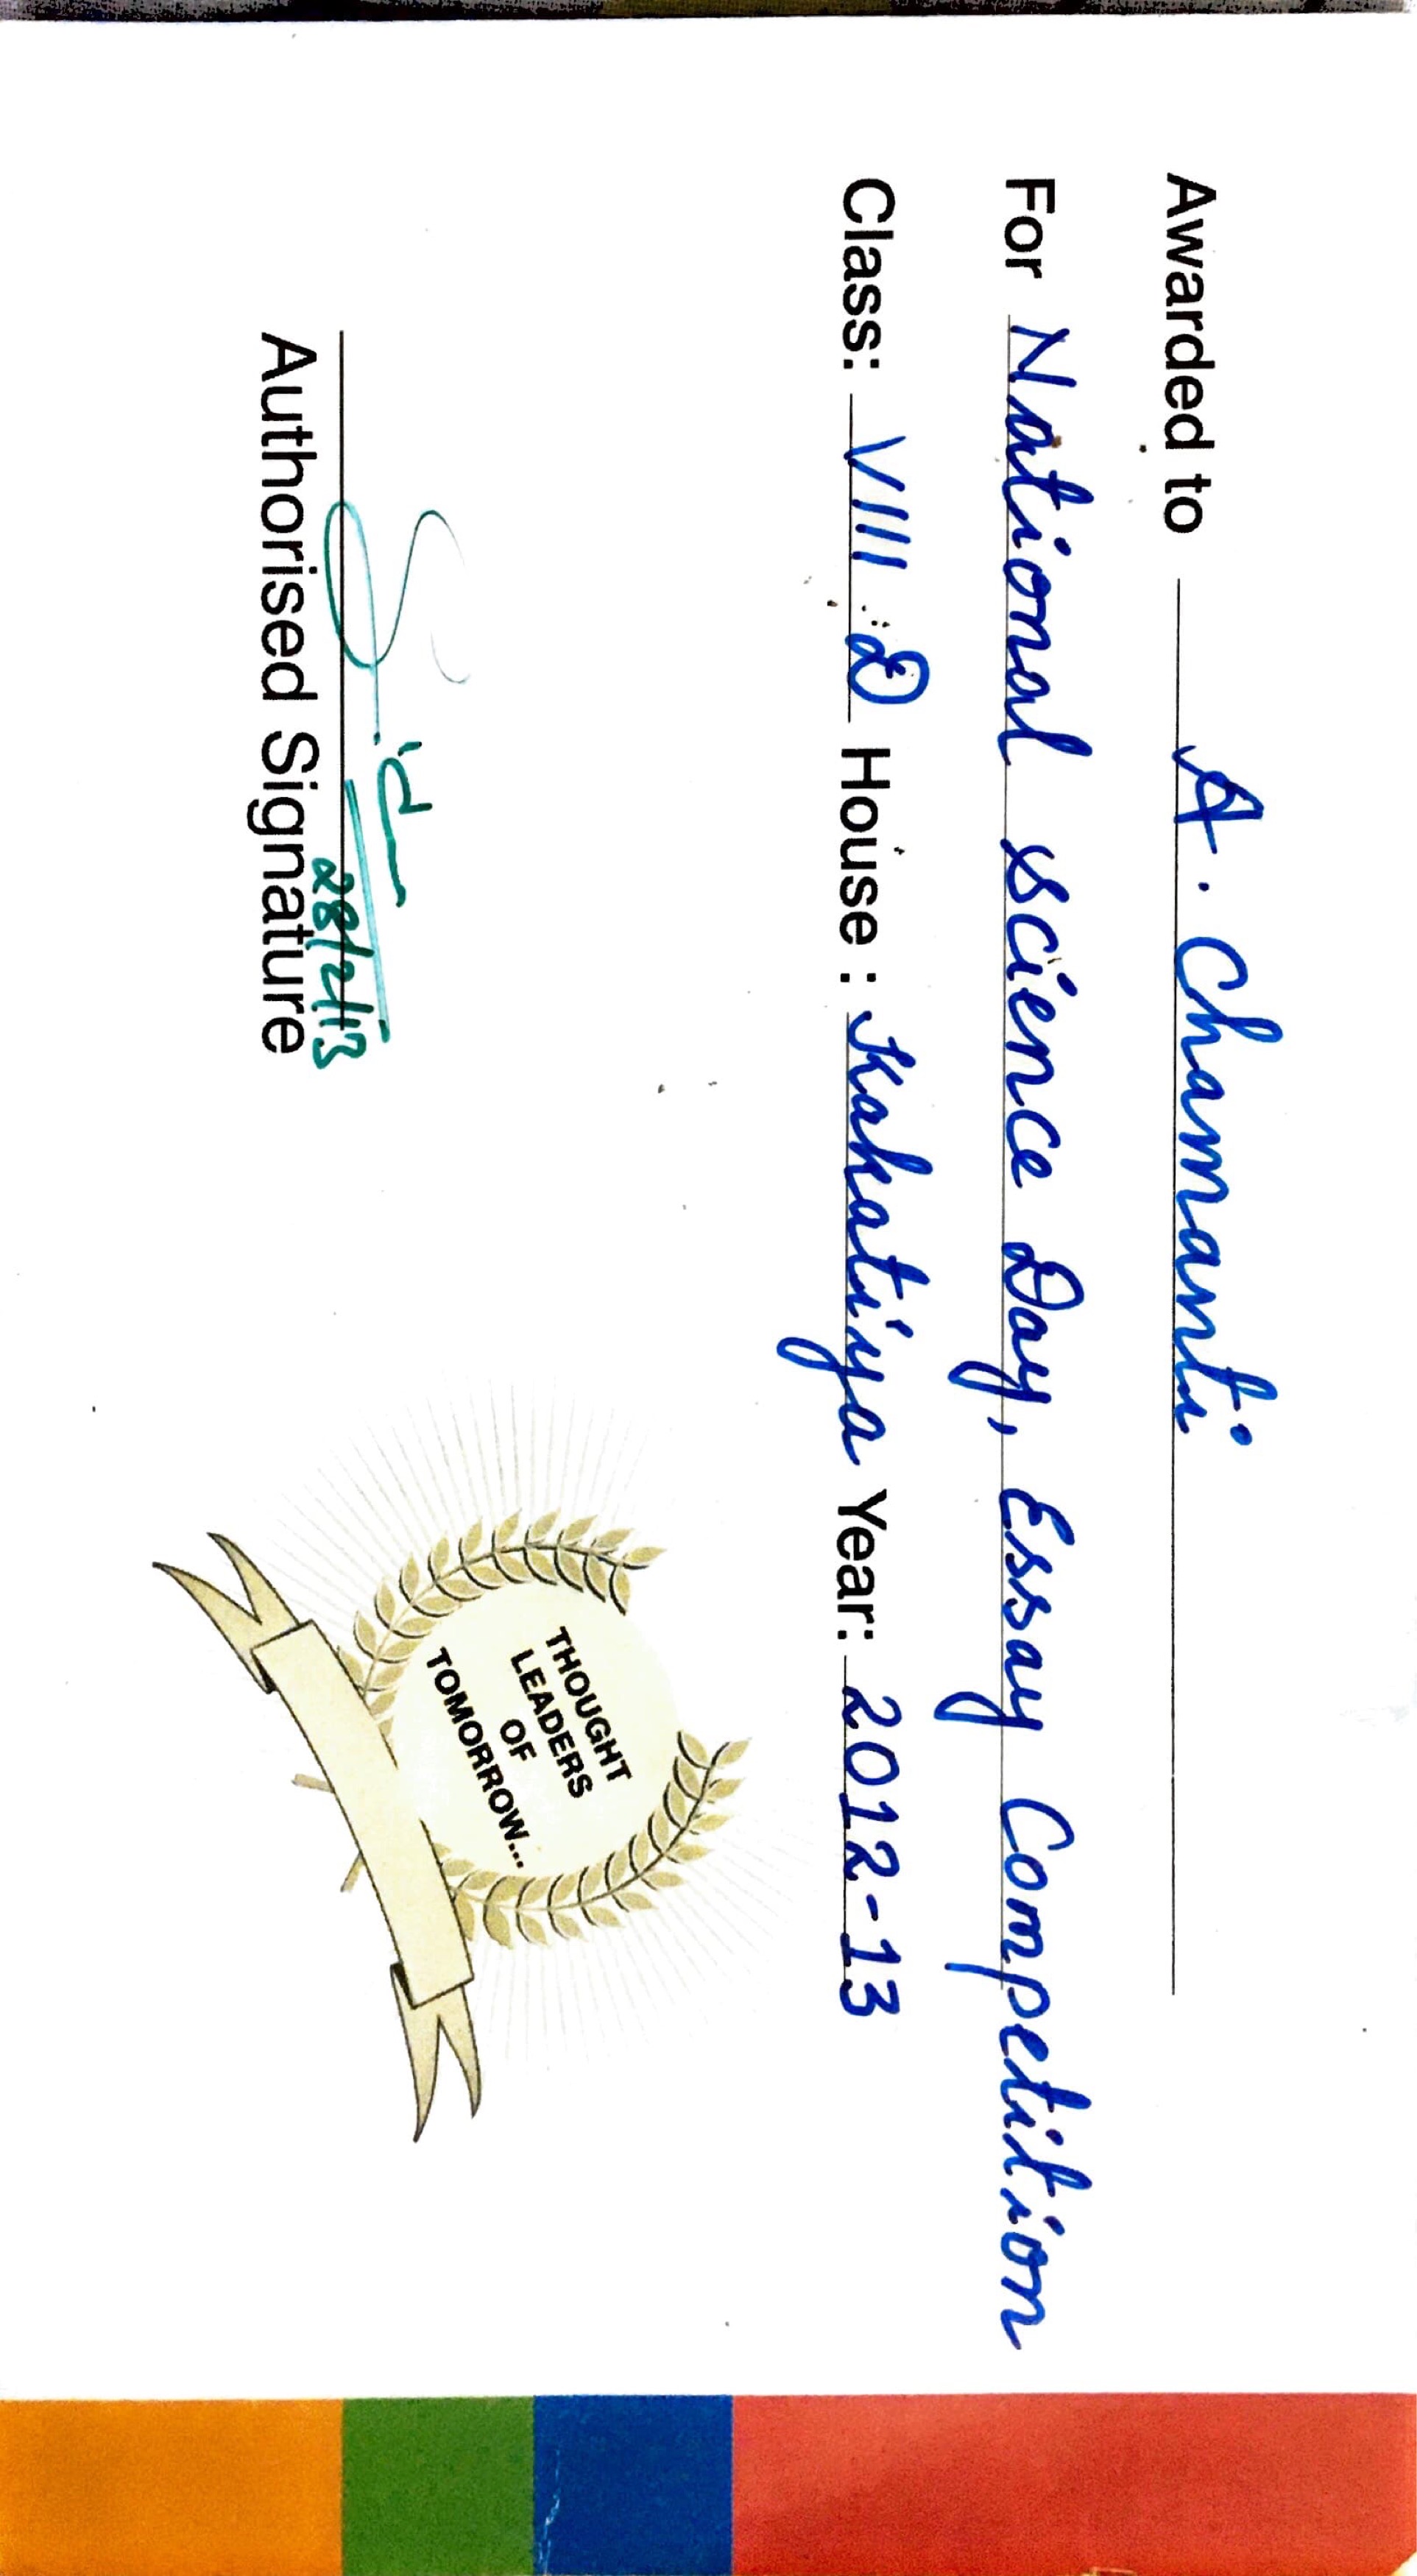 Awarded to A. Chamanti
For National Science Day, Essay Competition
Class: VIII D House : Kakatiya Year: 2012-13
28/2/13
Authorised Signature
THOUGHT
LEADERS
OF
TOMORROW...